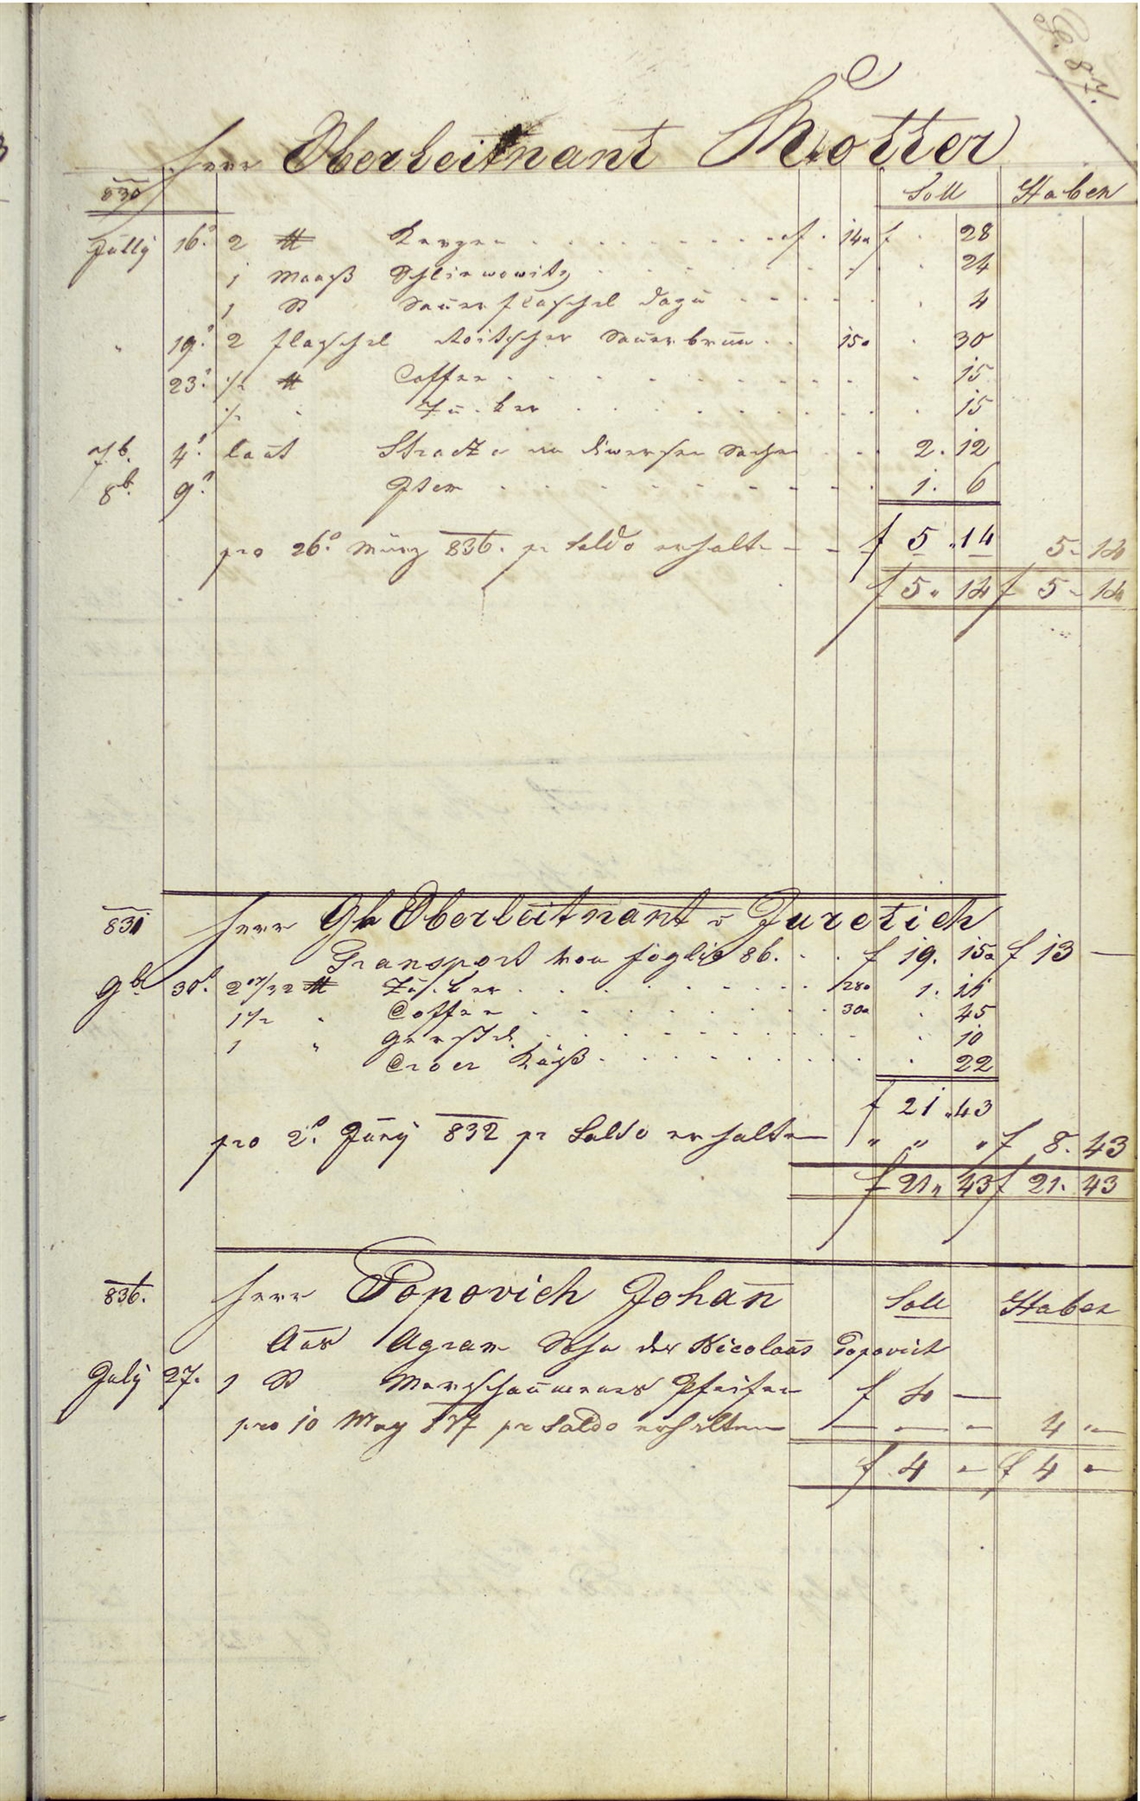 P. 87.
Herr Oberleitnant Kotter
830 Soll Haben
Jully 16. 2 ℔ Kerzen f 14 f 28
1 Maaß Schliwowitz 24
1 St Sauerflaschel dazu 4
" 19. 2 Flaschel Roitscher Sauerbrun 15 30
23. ½ ℔ Caffee 15
½ " Zucker 15
7b. 4. laut Strazza an diversen Sachen 2. 12
8b. 9. Dter 1. 6
f 5 "14
pro 26. März 836. pr Saldo erhalten 5 " 14
f 5 " 14 f 5 " 14
831 Herr Oberleitnant v Juretich
Transport von foglio 86. f 19. 15 f 13 —
9b. 30. 2 ℔ Zucker 28 1. 11
1½ " Caffee 30 " 45
1 " Gerstel 10
Croer Käß 22
f 21 "43
pro 2. Juny 832 pr Saldo erhalten " " " f 8. 43
f 21 " 43 f 21. 43
836. Herr Popovich Johan̄ Soll Haben
Aus Agram Sohn des Nicolaus Popovich
July 27. 1 St Merschaumenes Pfeifen f 4 —
pro 10 May 837 pr Saldo erhalten — — — 4 "—
f 4 — f 4 —